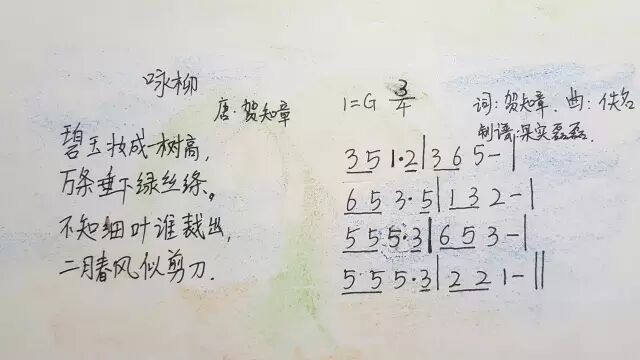 咏柳
唐:贺知章
碧玉妆成一树高,
万条垂下绿丝绦。
不知细叶谁裁出,
二月春风似剪刀.
1=G 3/4
词:贺知章. 曲:佚名
制谱:果实磊磊.
3 5 1·2|3 6 5-|
6 5 3·5|1 3 2-|
5 5 5·3|6 5 3-|
5 5 5·3|2 2 1-‖